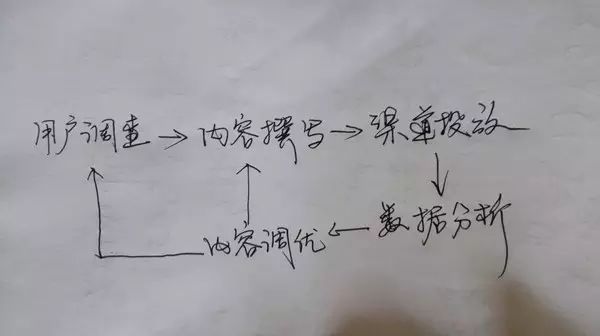 用户调查→内容撰写→渠道投放
内容调优←数据分析